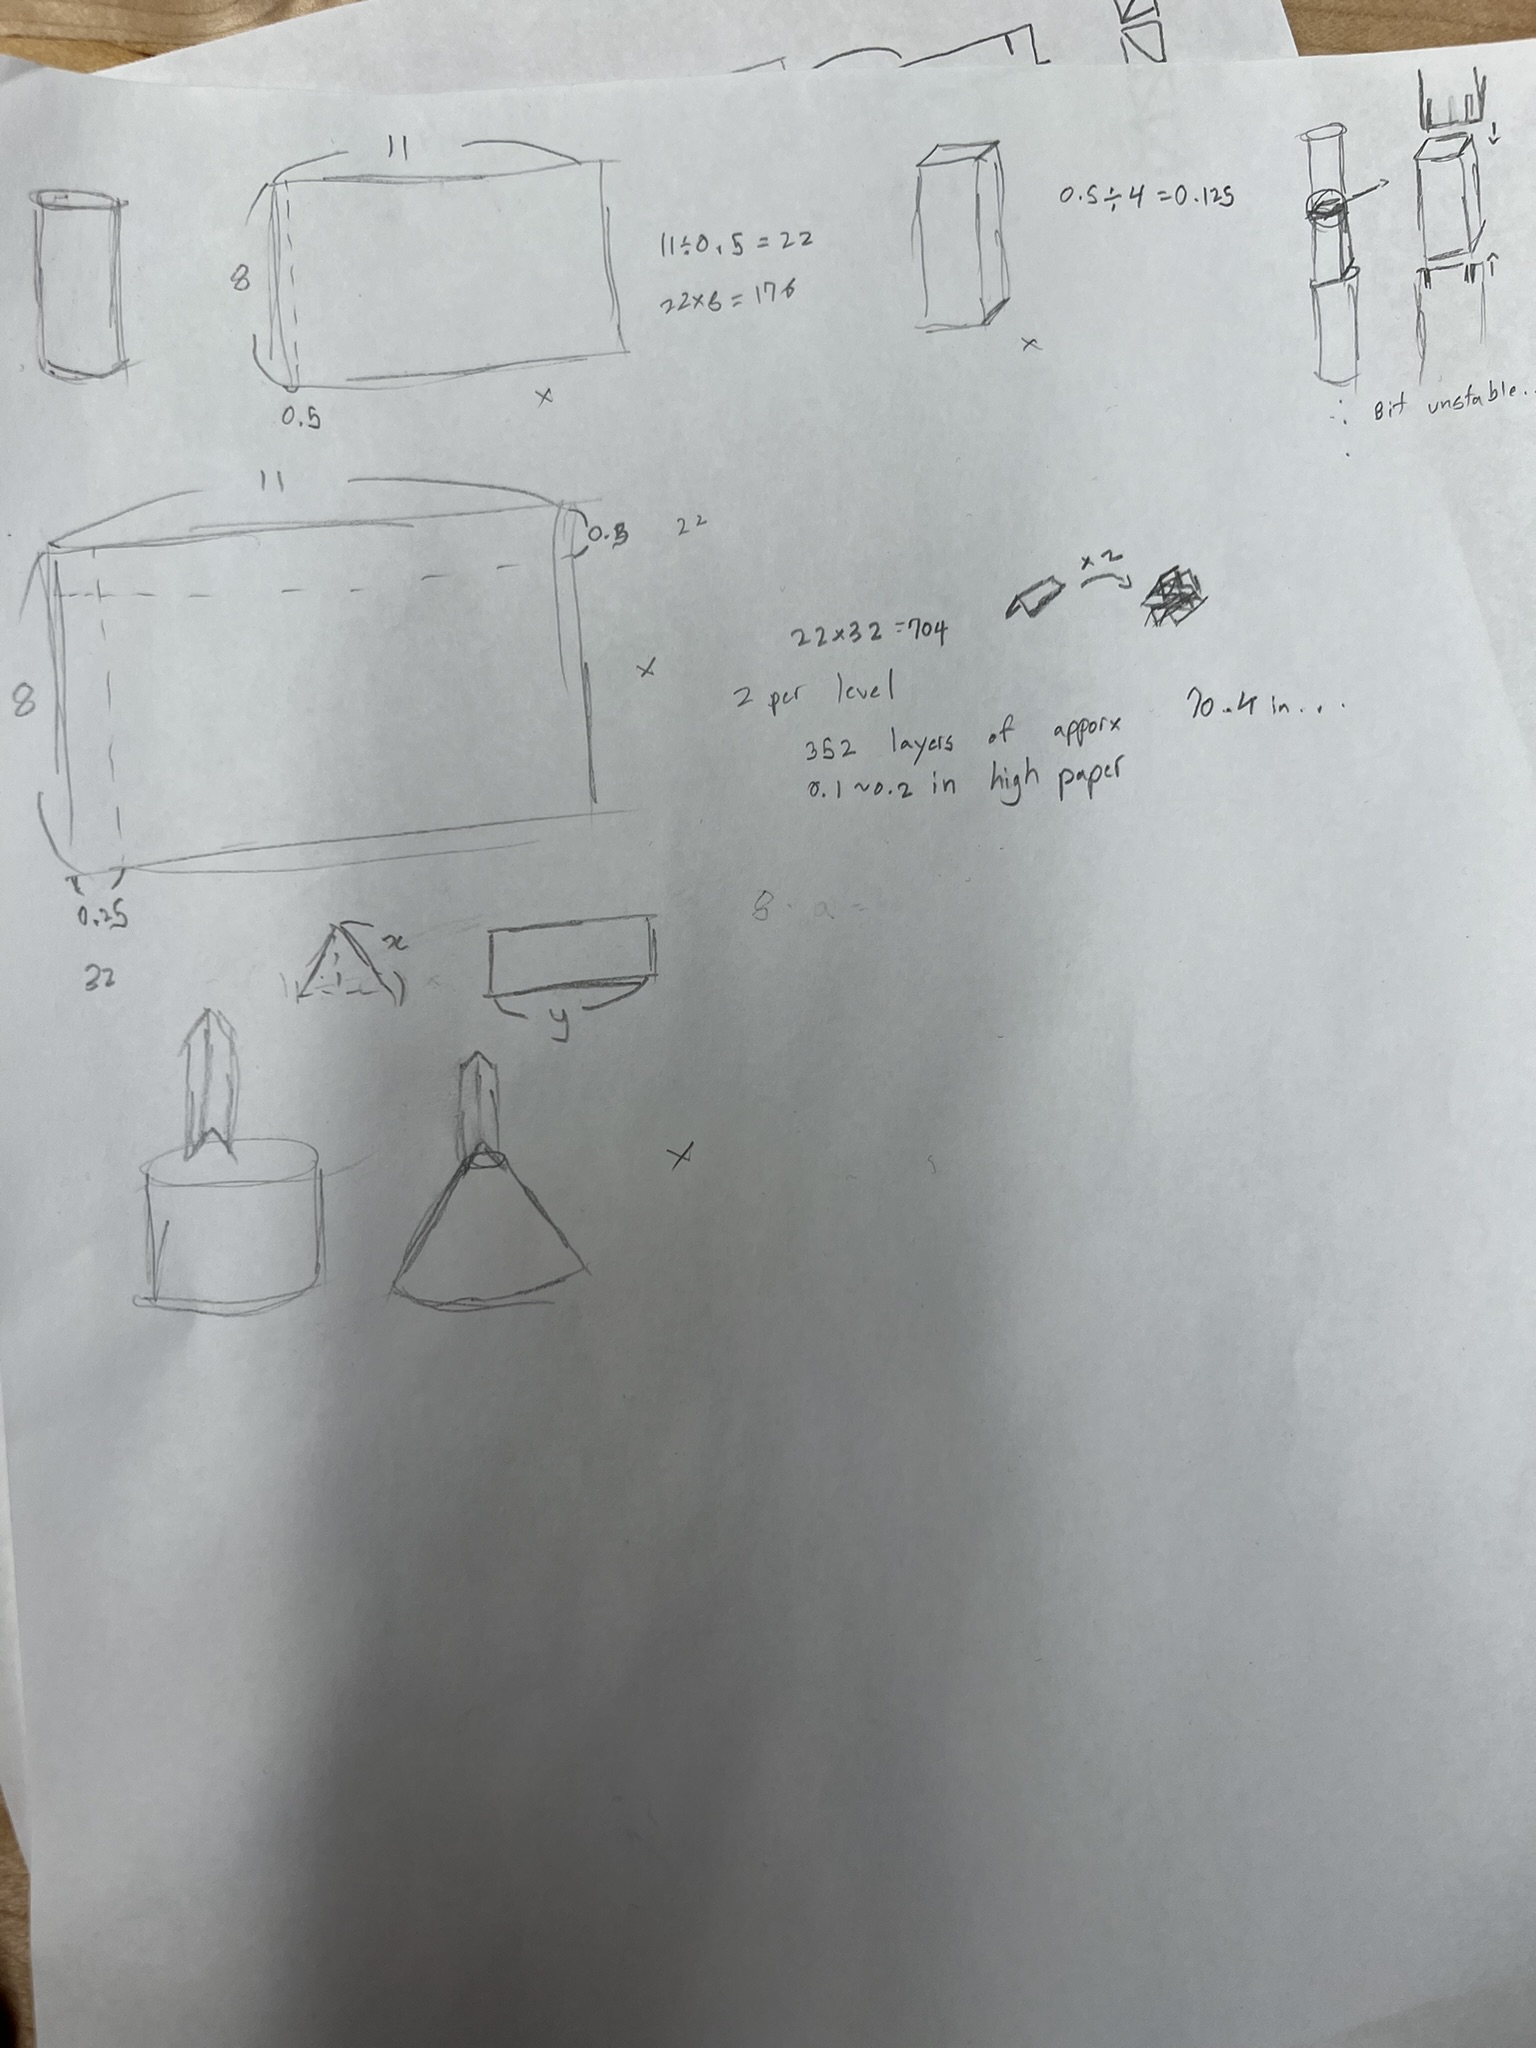 11
8
0.5
x
11÷0.5 = 22
22×8 = 176
x
0.5÷4 = 0.125
∴ Bit unstable..
11
8
0.5
22
x
0.25
32
×2
22×32 = 704
2 per level
352 layers of apporx
0.1~0.2 in high paper
70.4 in...
8. a =
x
y
x